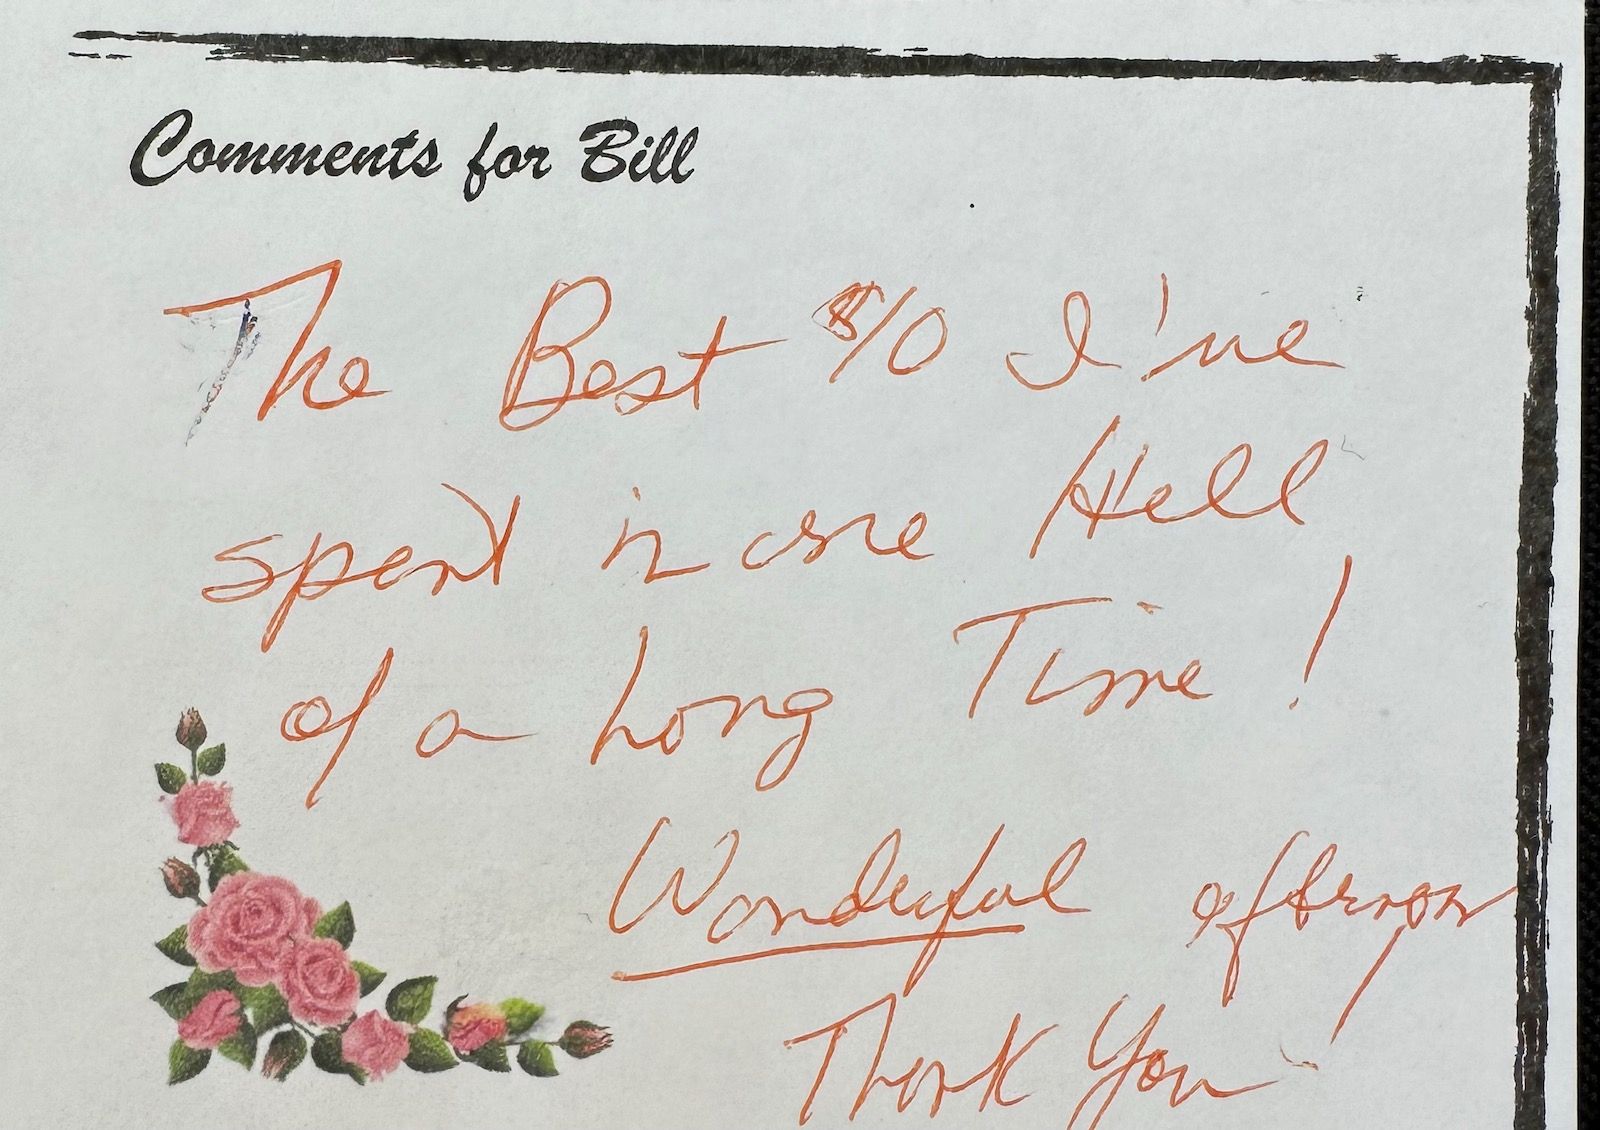 Comments for Bill
The Best $10 I've
spent in one Hell
of a Long Time!
Wonderful afternoon!
Thank You